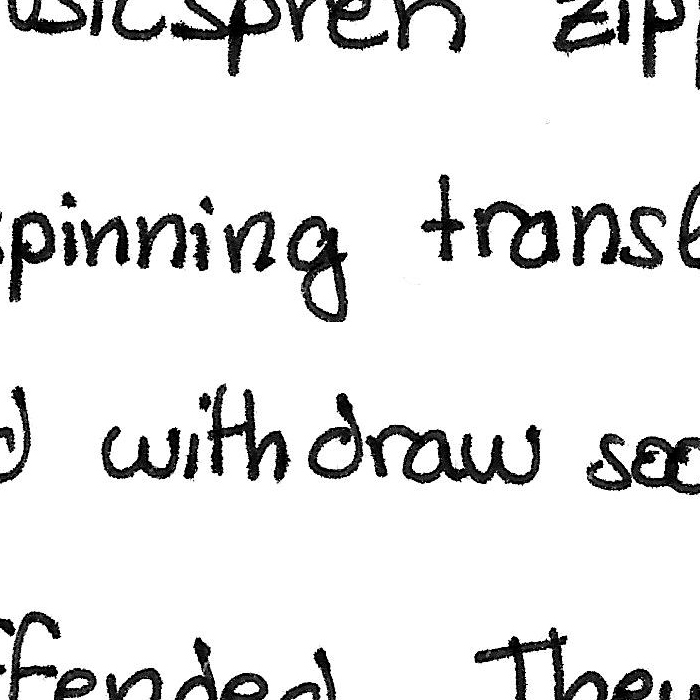 usicspren zip
spinning transl
d withdraw soo
ffended They